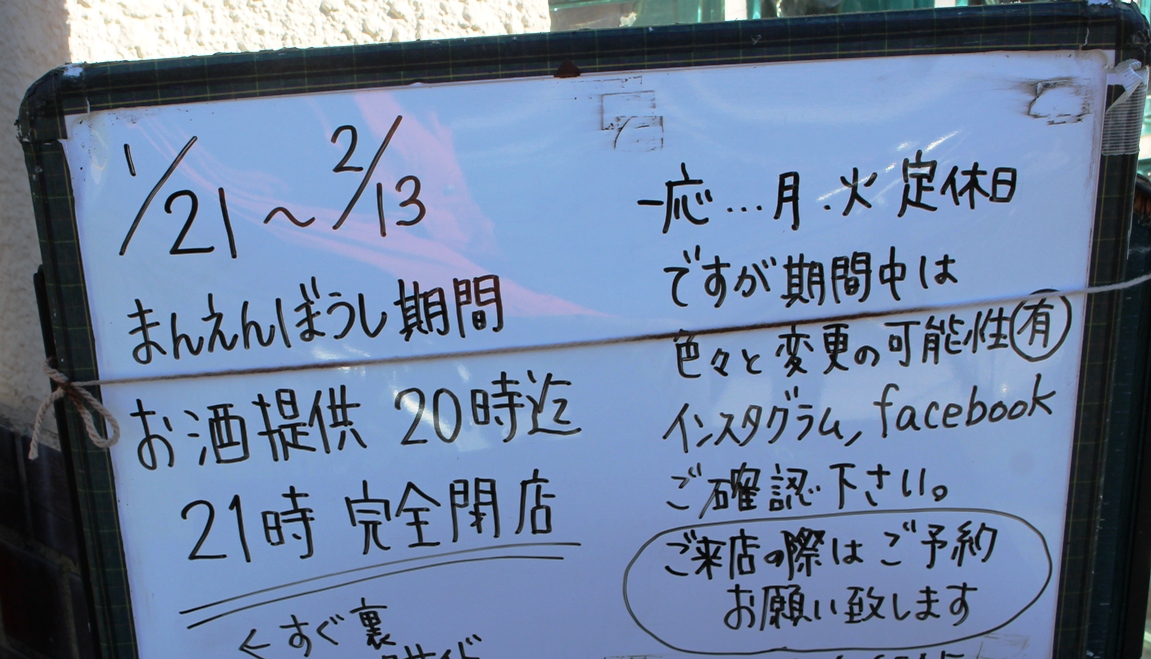 1/21～2/13
まんえんぼうし期間
お酒提供 20時迄
21時 完全閉店
←すぐ裏
一応…月.火 定休日
ですが期間中は
色々と変更の可能性有
インスタグラム, facebook
ご確認下さい。
ご来店の際はご予約
お願い致します